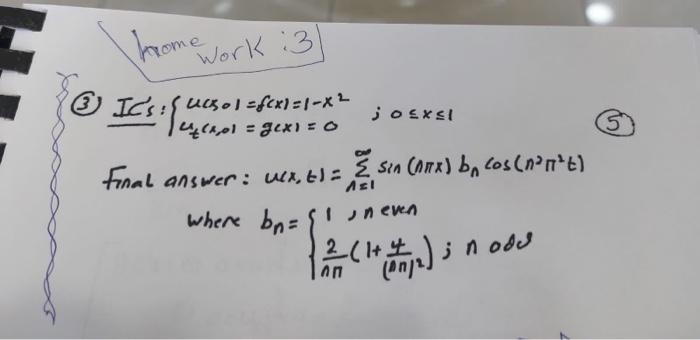 Home
Work : 3
③ IC's : { u(x,0) = f(x) = 1 - x² ; 0 ≤ x ≤ 1
u_t(x,0) = g(x) = 0
⑤
Final answer : u(x,t) = ∑_{n=1}^{∞} sin(nπx) b_n cos(n²π²t)
where b_n = { 1 , n even
2/nπ (1 + 4/(nπ)²) ; n odd